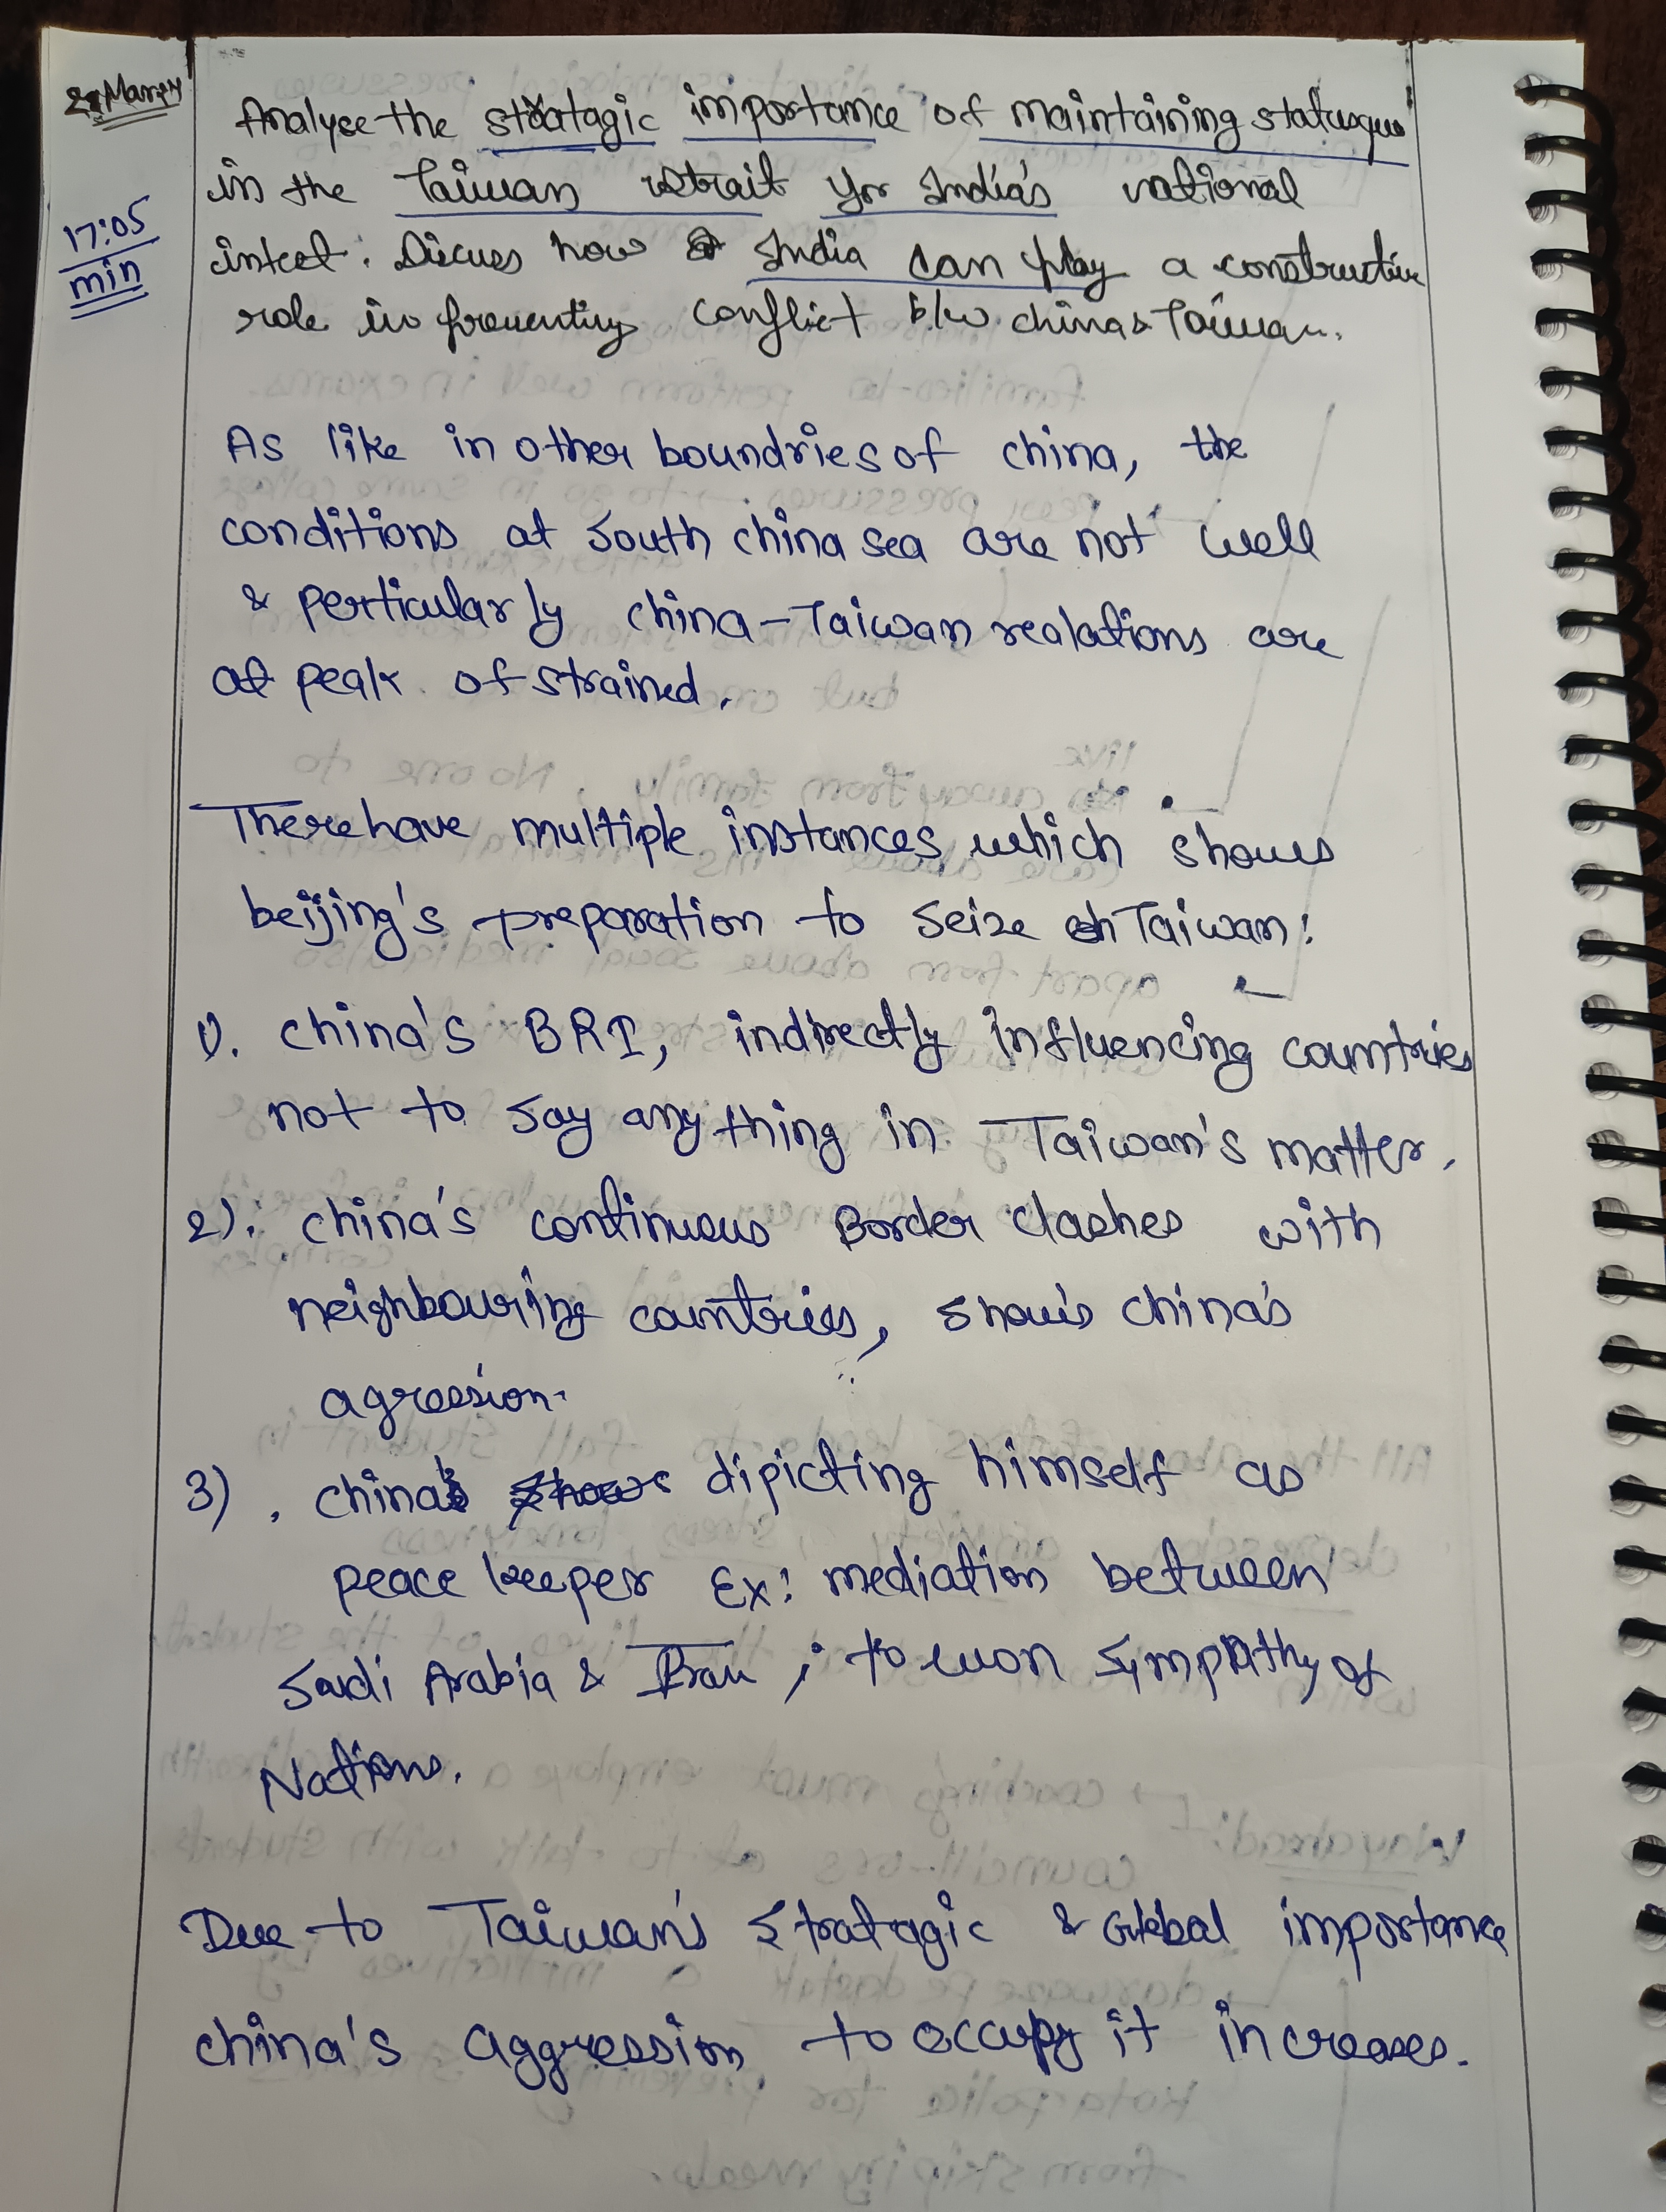 Analyse the stratagic importance of maintaining statusquo
in the Taiwan strait for India's national
intrest. Discuss how India can play a constructive
role in preventing conflict b/w china & Taiwan.
17:05
min
As like in other boundries of china, the
conditions at South china sea are not well
& perticularly china-Taiwan realations are
at peak of strained.
There have multiple instances which shows
beijing's preparation to seize Taiwan:
1). china's BRI, indirectly influencing countries
not to say anything in Taiwan's matter.
2). china's continuous Border clashes with
neighbouring countries, shows china's
agression.
3). china dipicting himself as
peace keeper Ex: mediation between
Saudi Arabia & Iran, to won sympathy of
Nations.
Due to Taiwan's Stratagic & Global importance
china's aggression to occupy it increases.